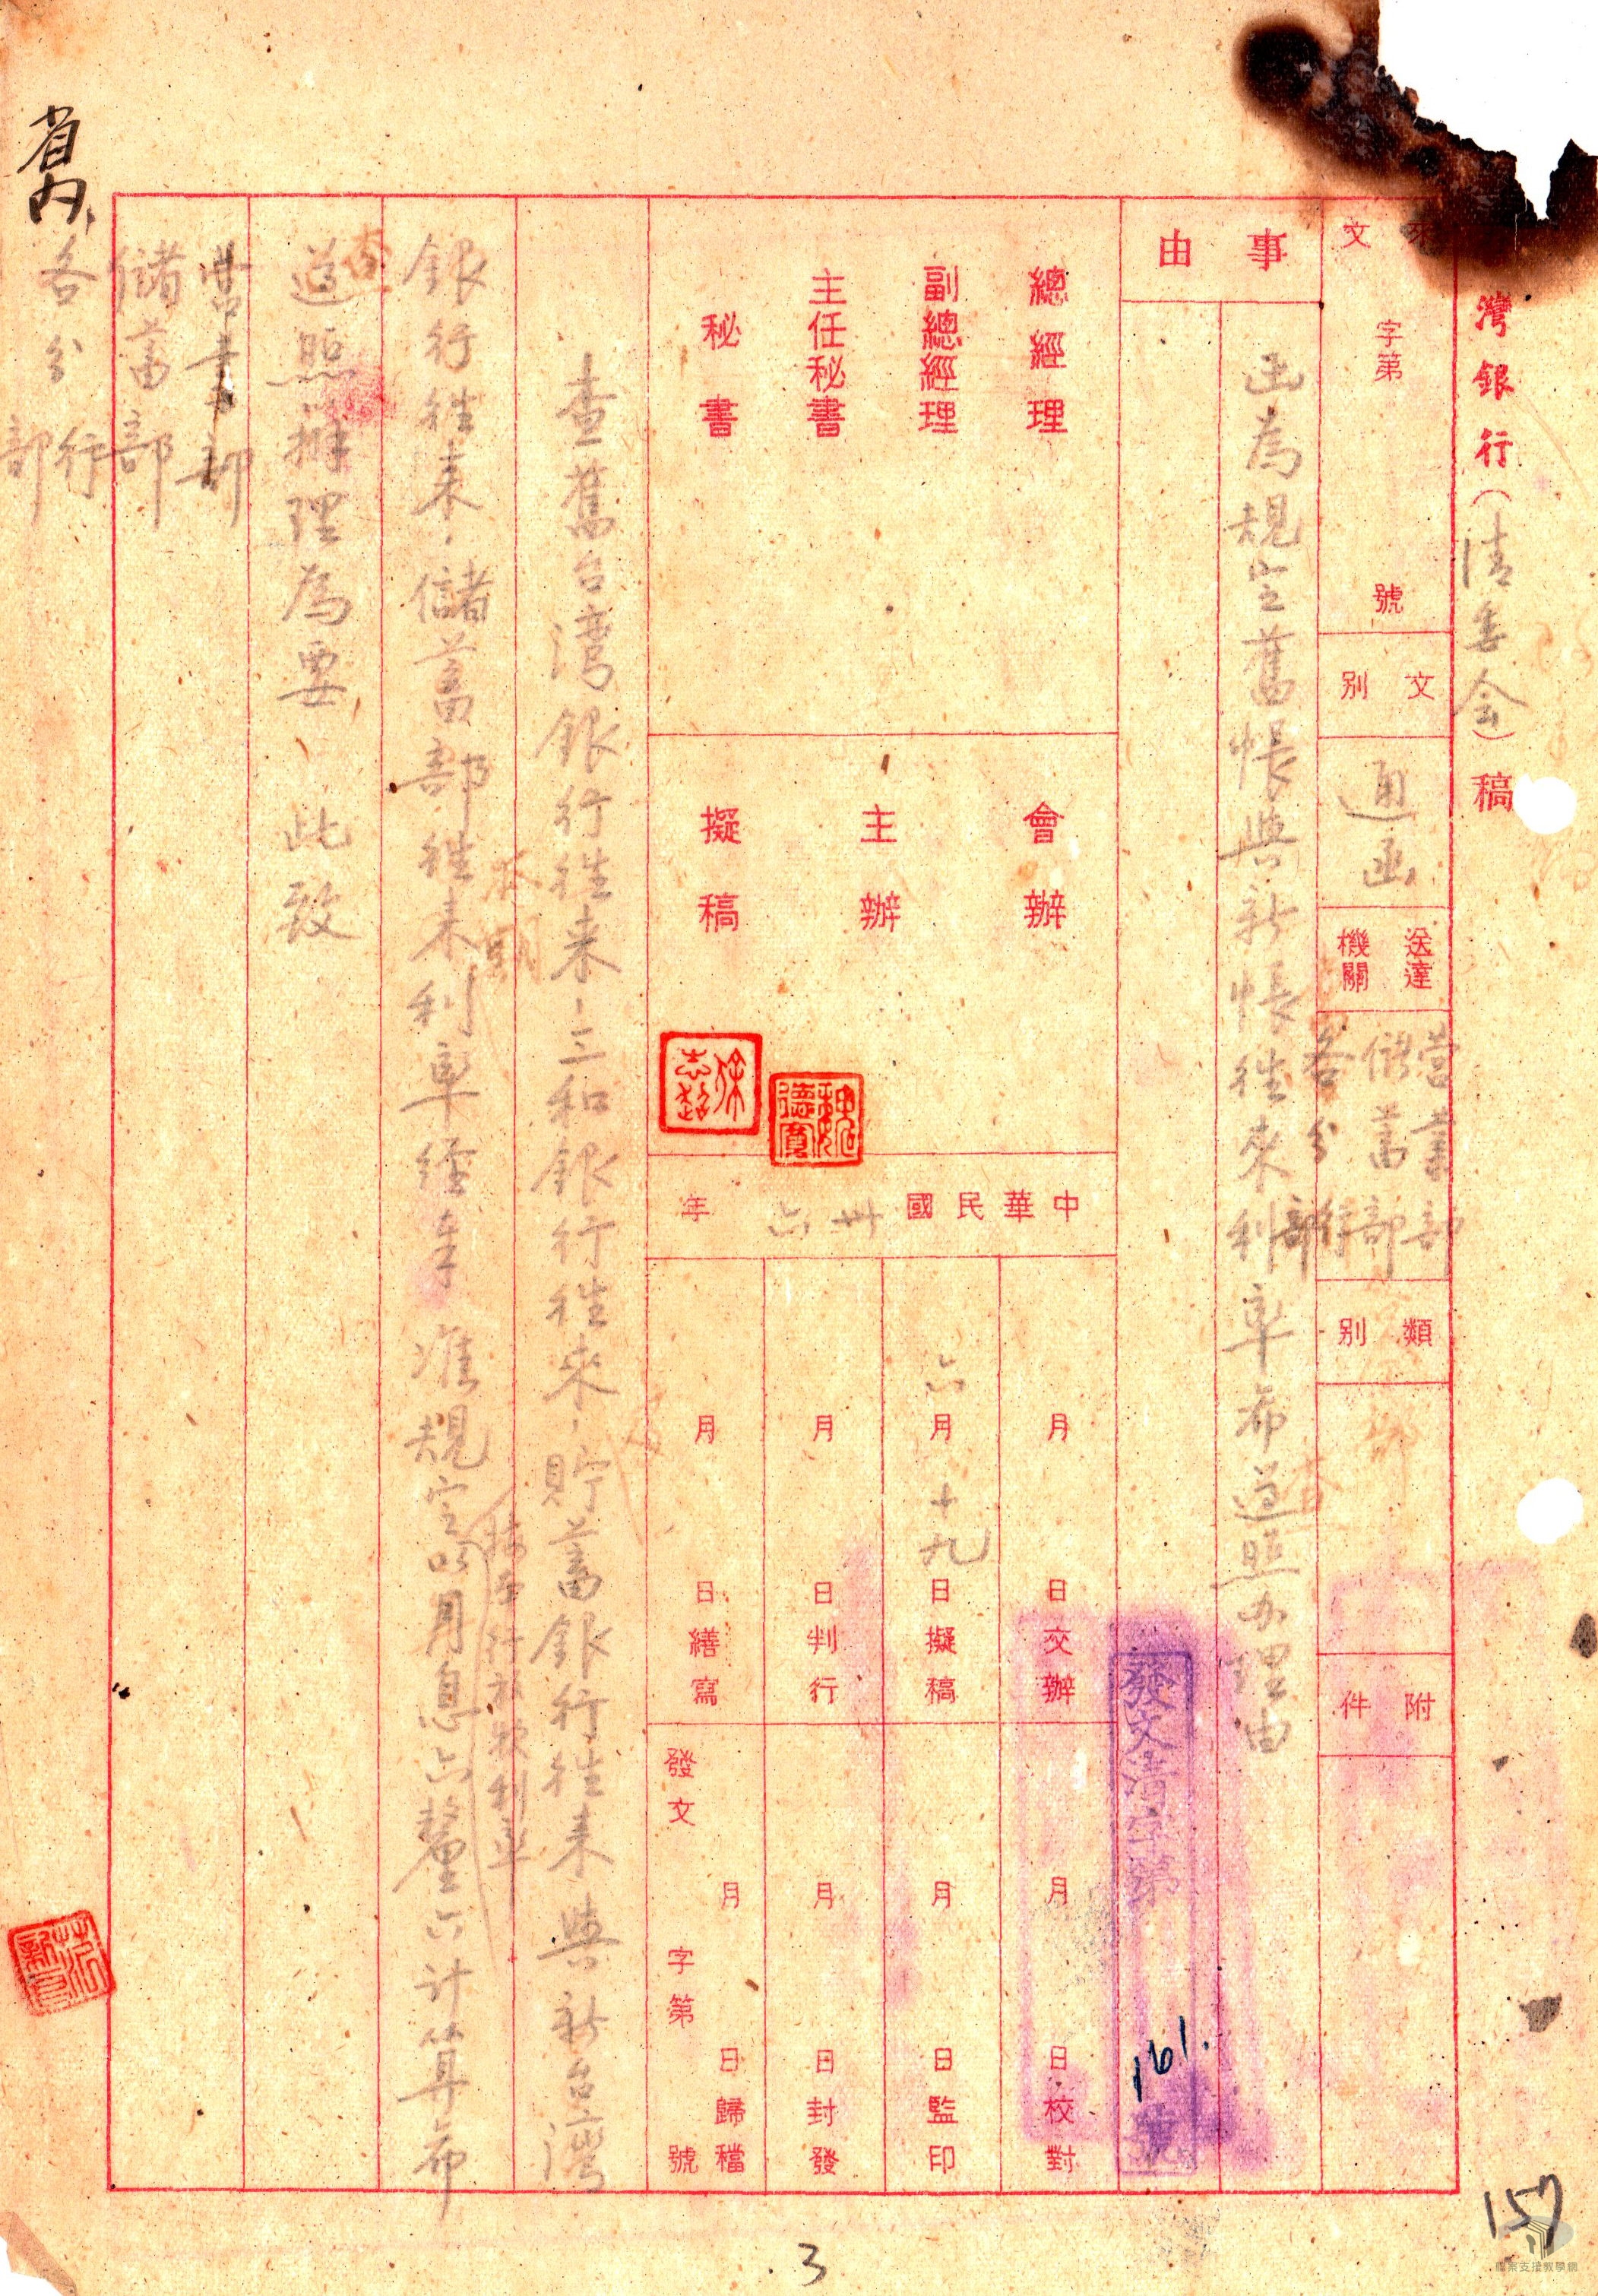 灣銀行(清委会)稿
來文
字第 號
文別
通函
送達機關
營業部
儲蓄部
各分行部
類別
附件
事由
函為規定舊帳與新帳往來利率希遵照办理由
查
發文清字第161.號
總經理
副總經理
主任秘書
秘書
會辦
主辦
擬稿
魏德寬
中華民國卅六年
月 日交辦
六月十九日擬稿
月 日判行
月 日繕寫
月 日校對
月 日監印
月 日封發
月 日歸檔
發文 字第 號
查舊台湾銀行往来、三和銀行往來、貯蓄銀行往来與新台灣
銀行往来、儲蓄部往来利率經奉 准規定以月息六釐六计算希
按至行放款利率
查
遵照辦理為要 此致
營業部
儲蓄部
省內各分行部
3
157
檔案支援教學網